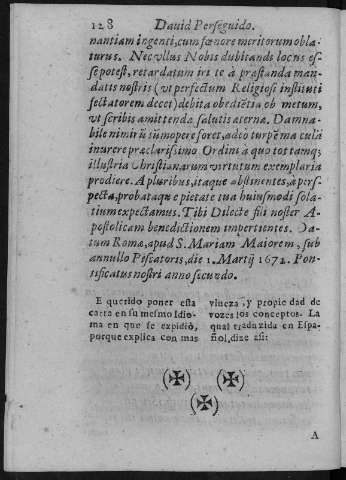 128 Dauid Perseguido.
nantiam ingenti, cum fœnore meritorum obla-
turus. Nec vllus Nobis dubitandi locus es-
se potest, retardatum iri te à præstanda man-
datis nostris (vt perfectum Religiosi instituti
sectatorem decet) debita obediẽtia ob metum,
vt scribis amittendæ salutis æternæ. Damna-
bile nimirũ sũmopere foret, adeò turpẽ maculã
inurere præclarissimo Ordini à quo tot tamq;
illustria Christianarum virtutum exemplaria
prodiere. A pluribus, itaque abstinentes, à pers-
pecta, probataque pietate tua huiusmodi sola-
tium expectamus. Tibi Dilecte fili noster A-
postolicam benedictionem impertientes. Da-
tum Romæ, apud S. Mariam Maiorem, sub
annullo Piscatoris, die 1. Martij 1671. Pon-
tificatus nostri anno secundo.
E querido poner esta
carta en su mesmo Idio-
ma en que se expidiò,
porque explica con mas
viueza, y propiedad de
vozes los conceptos. La
qual traduzida en Espa-
ñol, dize assi:
A